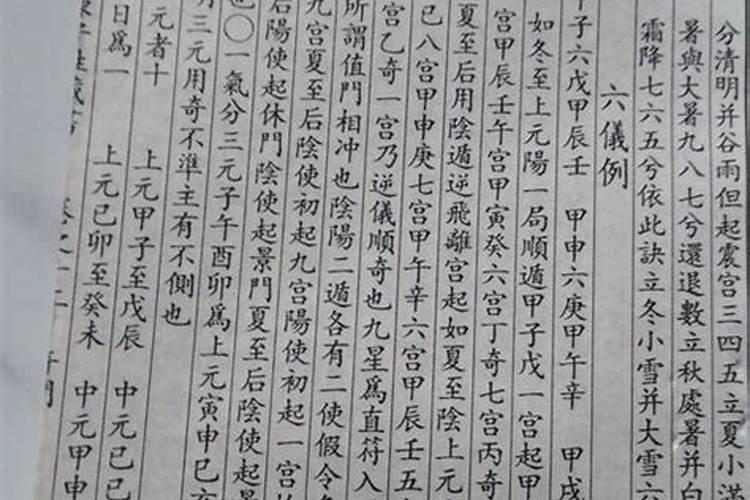 分清明并谷雨但起震宮三四五立夏小滿
暑與大暑九八七兮還退數立秋處暑并白
霜降七六五兮依此訣立冬小雪并大雪六
六儀例
甲子六戊甲辰壬 甲申六庚甲午辛 甲戌
如冬至上元陽一局順遁甲子戊一宮起甲
宮甲辰壬午宮甲寅癸六宮丁奇七宮丙奇
夏至后用陰遁逆飛離宮起如夏至陰上元
己八宮甲申庚七宮甲午辛六宮甲辰壬五
宮乙奇一宮乃逆儀順奇也九星為直符入
所謂值門相冲也陰陽二遁各有二使假令
九宮夏至后陰使初起九宮陽使初起一宮
后陽使起休門陰使起景門夏至后陰使起景
也〇一氣分三元子午酉卯為上元寅申巳亥
三元用奇不準主有不側也
元者十 上元甲子至戊辰 中元己巳
日為一 上元己卯至癸未 中元甲申
卷之十二